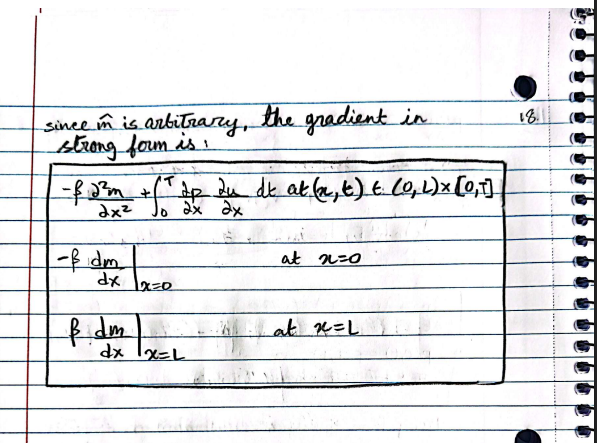 since m̂ is arbitrary, the gradient in 18
strong form is :
-β ∂²m/∂x² + ∫₀ᵀ ∂p/∂x ∂u/∂x dt at (x,t) ∈ (0,L)×[0,T]
-β dm/dx |x=0 at x=0
β dm/dx |x=L at x=L